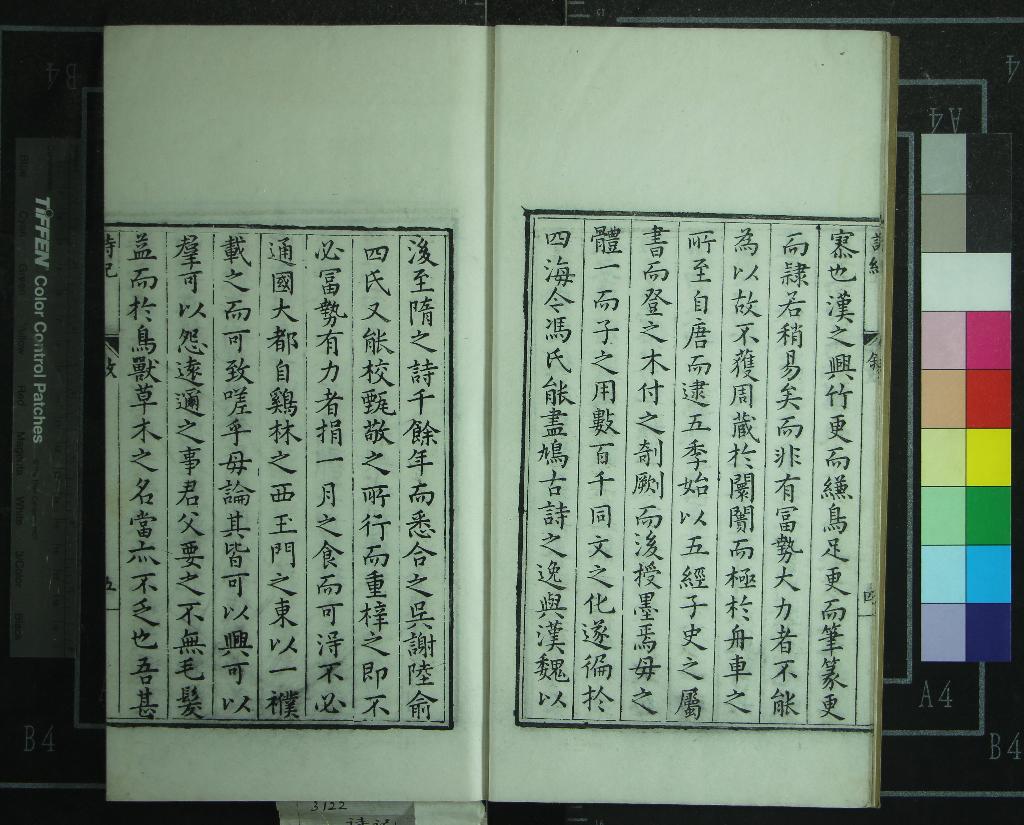 寡也漢之興竹更而縑鳥足更而筆篆更
而隸若稍易矣而非有冨勢大力者不能
為以故不獲周蔵於闤闠而極於舟車之
所至自唐而逮五季始以五經子史之屬
書而登之木付之剞劂而後授墨焉毋之
體一而子之用數百千同文之化遂徧於
四海今馮氏能盡鳩古詩之逸與漢魏以
後至隋之詩千餘年而悉合之吳謝陸俞
四氏又能校甄敬之所行而重梓之即不
必冨勢有力者捐一月之食而可淂不必
通國大都自鷄林之西玉門之東以一襆
載之而可致嗟乎毋論其皆可以興可以
羣可以怨遠邇之事君父要之不無毛髮
益而於鳥獸草木之名當亦不乏也吾甚
詩紀
五
TIFFEN Color Control Patches
B4
A4
A4
B4
3122